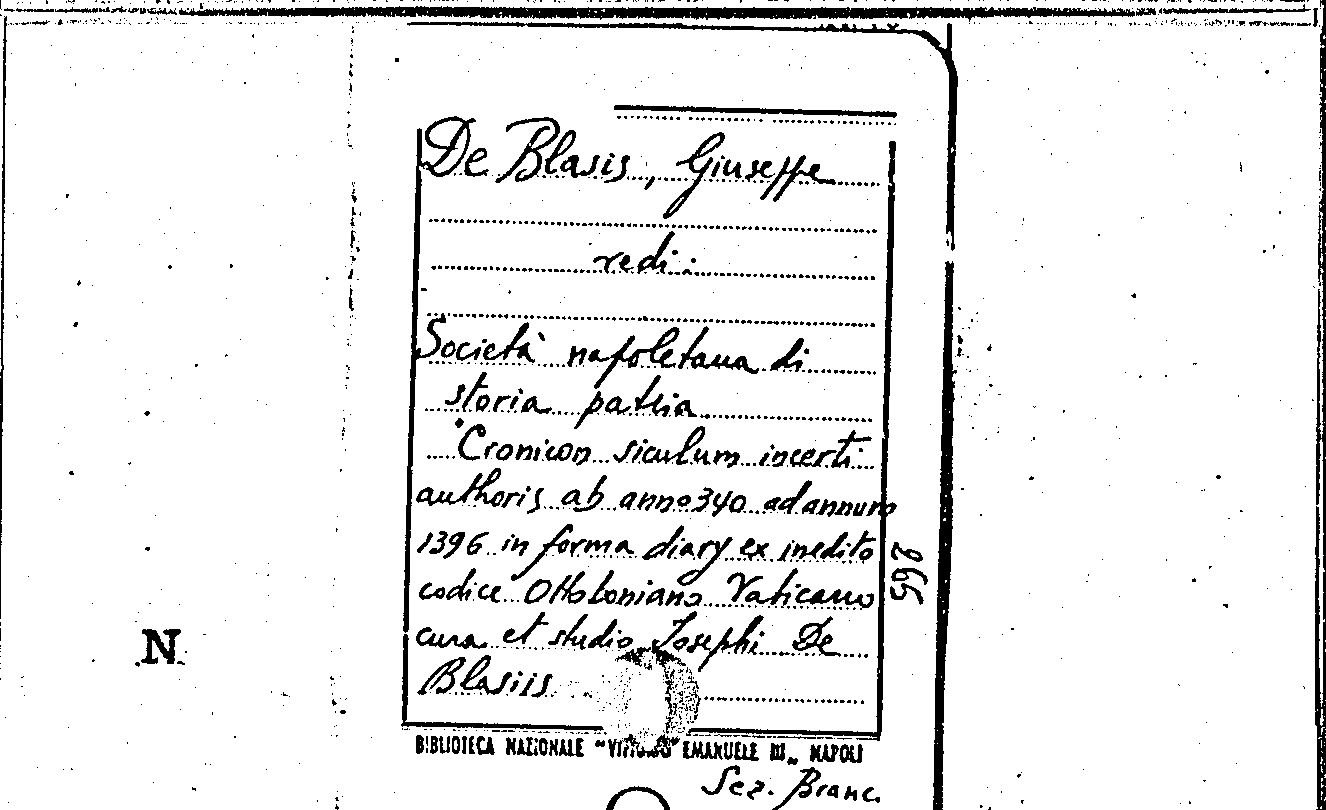 De Blasis, Giuseppe
vedi:
Società napoletana di
storia patria
"Cronicon siculum incerti
authoris ab anno 340 ad annum
1396 in forma diary ex inedito
codice Ottoboniano Vaticano
cura et studio Josephi De
Blasiis
265
N
BIBLIOTECA NAZIONALE "VITTORIO" EMANUELE III„ NAPOLI
Sez. Branc.